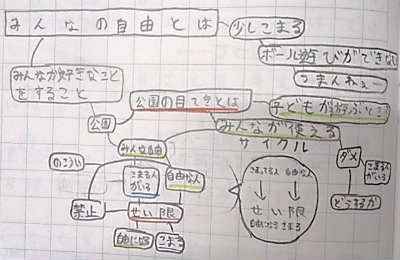 みんなの自由とは
少しこまる
ボール遊びができない
つまんねぇ
みんなが好きなこと
をすること
公園の目てきとは
子どもが遊ぶとこ
公園
みんなが使える
サイクル
みんな自由
こまる人
がいる
自由な人
禁止
せい限
自由になる
こまる
こまってる人
自由な人
↓
↓
せい限
自由になる
こまる
ダメ
こまる人
がいる
どうするか